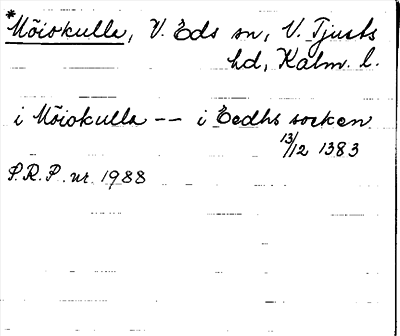 *Möiokulla, V. Eds sn, V. Tjusts
hd, Kalm. l.
i Möiokulla -- i Eedhs socken
13/12 1383
S.R.P. nr. 1988